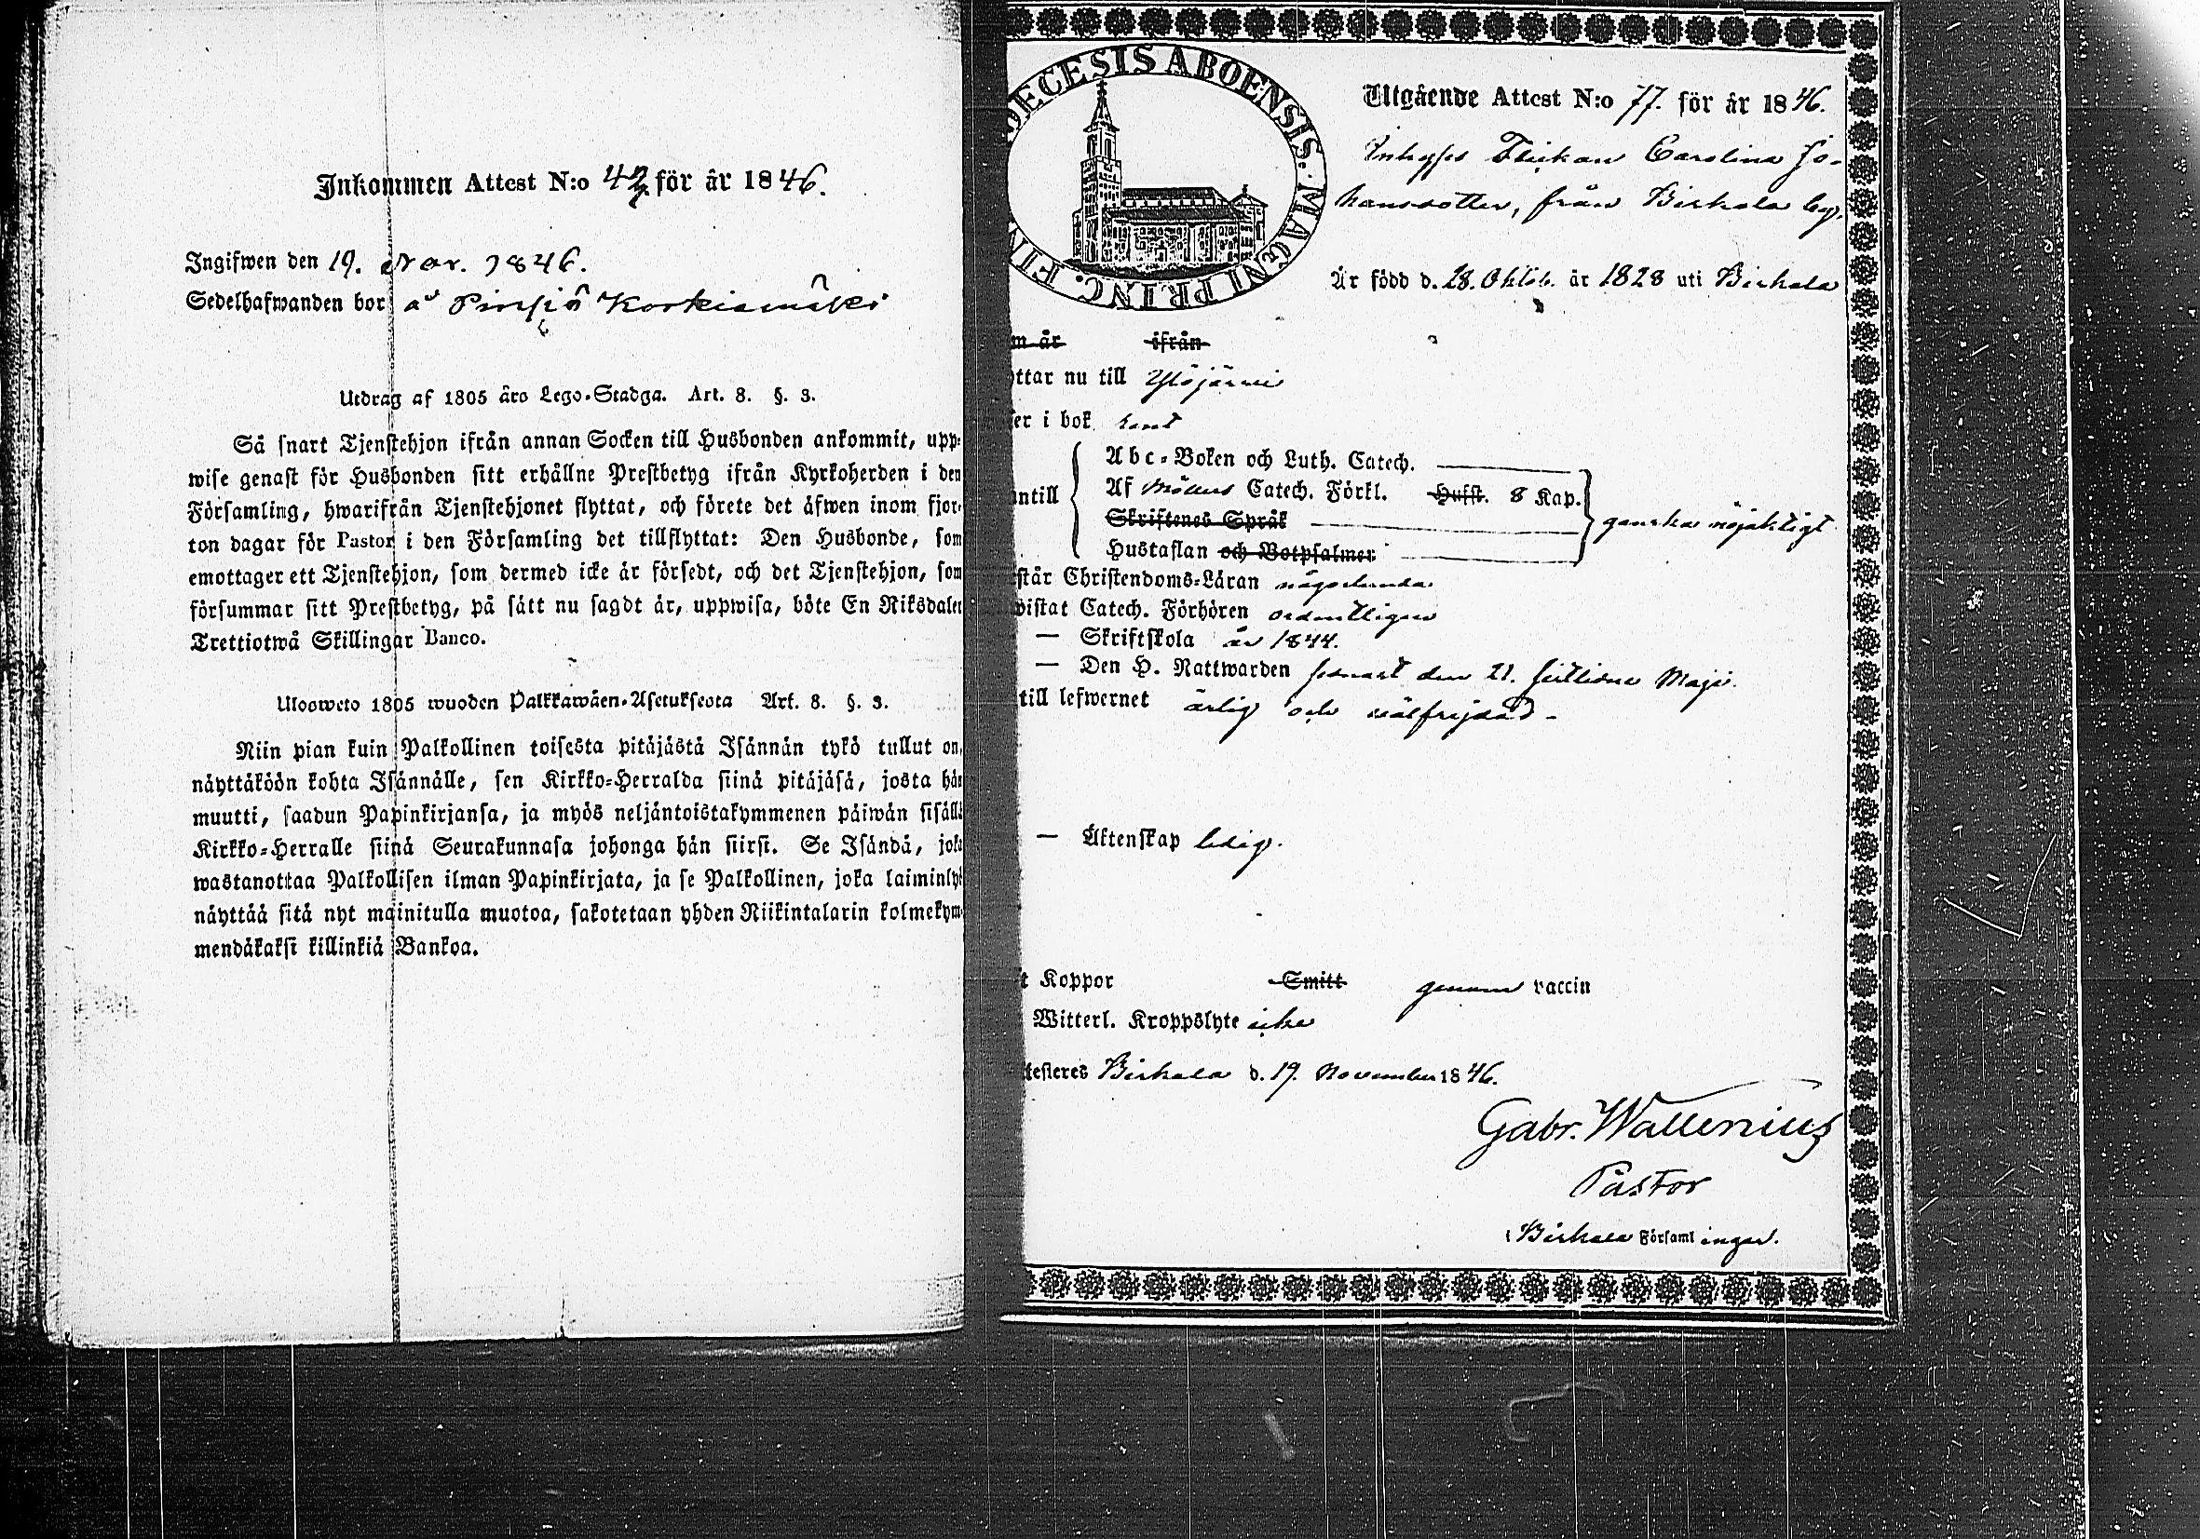 Inkommen Attest N:o 42 för år 1846.
Ingifwen den 19. Nov. 1846.
Sedelhafwanden bor å Pinsiö Korkiamäki
Utdrag af 1805 års Lego-Stadga. Art. 8. §. 3.
Så snart Tjenstehjon ifrån annan Socken till Husbonden ankommit, upp-
wise genast för Husbonden sitt erhållne Prestbetyg ifrån Kyrkoherden i den
Församling, hwarifrån Tjenstehjonet flyttat, och förete det äfwen inom fjor-
ton dagar för Pastor i den Församling det tillflyttat: Den Husbonde, som
emottager ett Tjenstehjon, som dermed icke är försedt, och det Tjenstehjon, som
försummar sitt Prestbetyg, på sätt nu sagdt är, uppwisa, böte En Riksdaler
Trettiotwå Skillingar Banco.
Uloosweto 1805 wuoden Palkkawäen-Asetuksesta Art. 8. §. 3.
Niin pian kuin Palkollinen toisesta pitäjästä Isännän tykö tullut on,
näyttäköön kohta Isännälle, sen Kirkko-Herralda siinä pitäjäsä, josta hän
muutti, saadun Papinkirjansa, ja myös neljäntoistakymmenen päiwän sisäll
Kirkko-Herralle siinä Seurakunnasa johonga hän siirsi. Se Isändä, joka
wastanottaa Palkollisen ilman Papinkirjata, ja se Palkollinen, joka laiminly
näyttää sitä nyt mainitulla muotoa, sakotetaan yhden Riikintalarin kolmekym-
mendäkaksi killinkiä Bankoa.
DECESIS ABOENSIS. MAGNI PRINC. FIN
Utgående Attest N:o 77. för år 1846.
Inhyses Flickan Carolina Jo-
hansdotter, från Birkala by,
Är född d. 28. Oktob. år 1828 uti Birkala
m år ifrån
ttar nu till Ylöjärvi
er i bok rent
Abc-Boken och Luth. Catech.
ntill Af Möllers Catech. Förkl. Husst. 8 Kap. ganska nöjaktigt
Skriftenes Språk
Hustaflan och Botpsalmer
står Christendoms-Läran någorlunda
vistat Catech. Förhören ordentligen
— Skriftskola år 1844.
— Den H. Nattwarden senast den 21. sistlidne Maji.
till lefwernet ärlig och välfrejdad -
— Äktenskap ledig.
t Koppor Smitt genom vaccin
Witterl. Kroppslyte icke
testeres Birkala d. 19. November 1846.
Gabr. Wallenius
Pastor
i Birkala Församlingar.